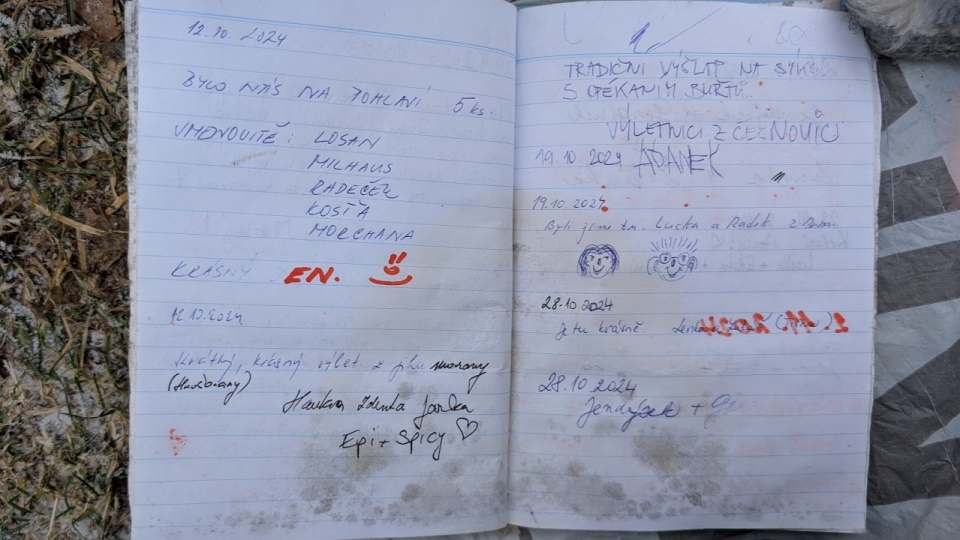 12.10 2024
BYLO NÁS NA POHLAVÍ 5 ks.
JMENOVITĚ: LOSAN
MILHAUS
RADEČEK
KOSŤA
MORCHANA
KRÁSNÝ EN.
12.10.2024
Krátký, krásný výlet z jihu moravy
(Hustopeče)
Zdenka Jarka
Epi + Spicy ♡
TRADIČNÍ VÝŠLAP NA
S OPÉKANÍM BUŘTŮ
VÝLETNÍCI Z ČERNOVIC
19.10 2024 ADÁNEK
19.10.2024
Byli jsme tu. Lucka a Radik z
28.10.2024
Je tu krásně Lenka
2.11.2024
28.10 2024